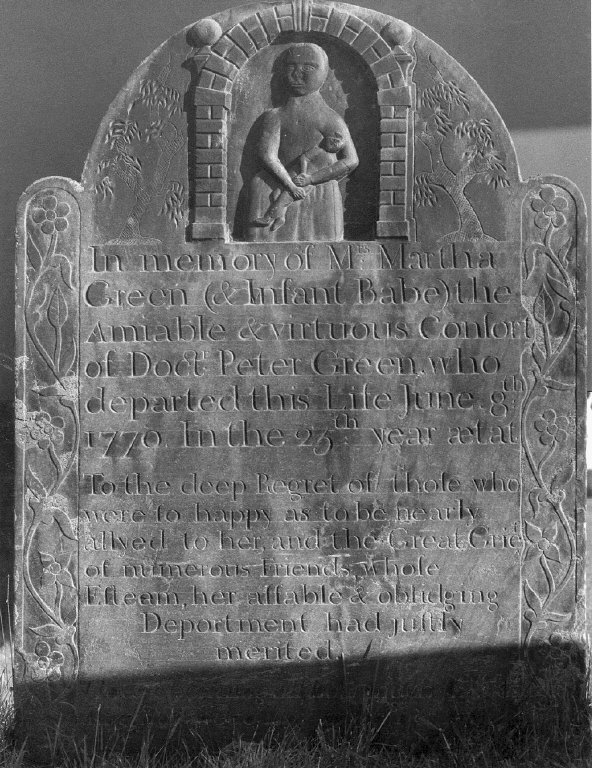 In memory of Mrs. Martha
Green (& Infant Babe) the
Amiable & virtuous Confort
of Doct. Peter Green, who
departed this Life June 8th
1770. In the 25th year ætat.
To the deep Regret of thoſe who
were ſo happy as to be nearly
allyed to her, and the Great Grief
of numerous Friends, whoſe
Eſteam, her affable & oblidging
Deportment had juſtly
merited.